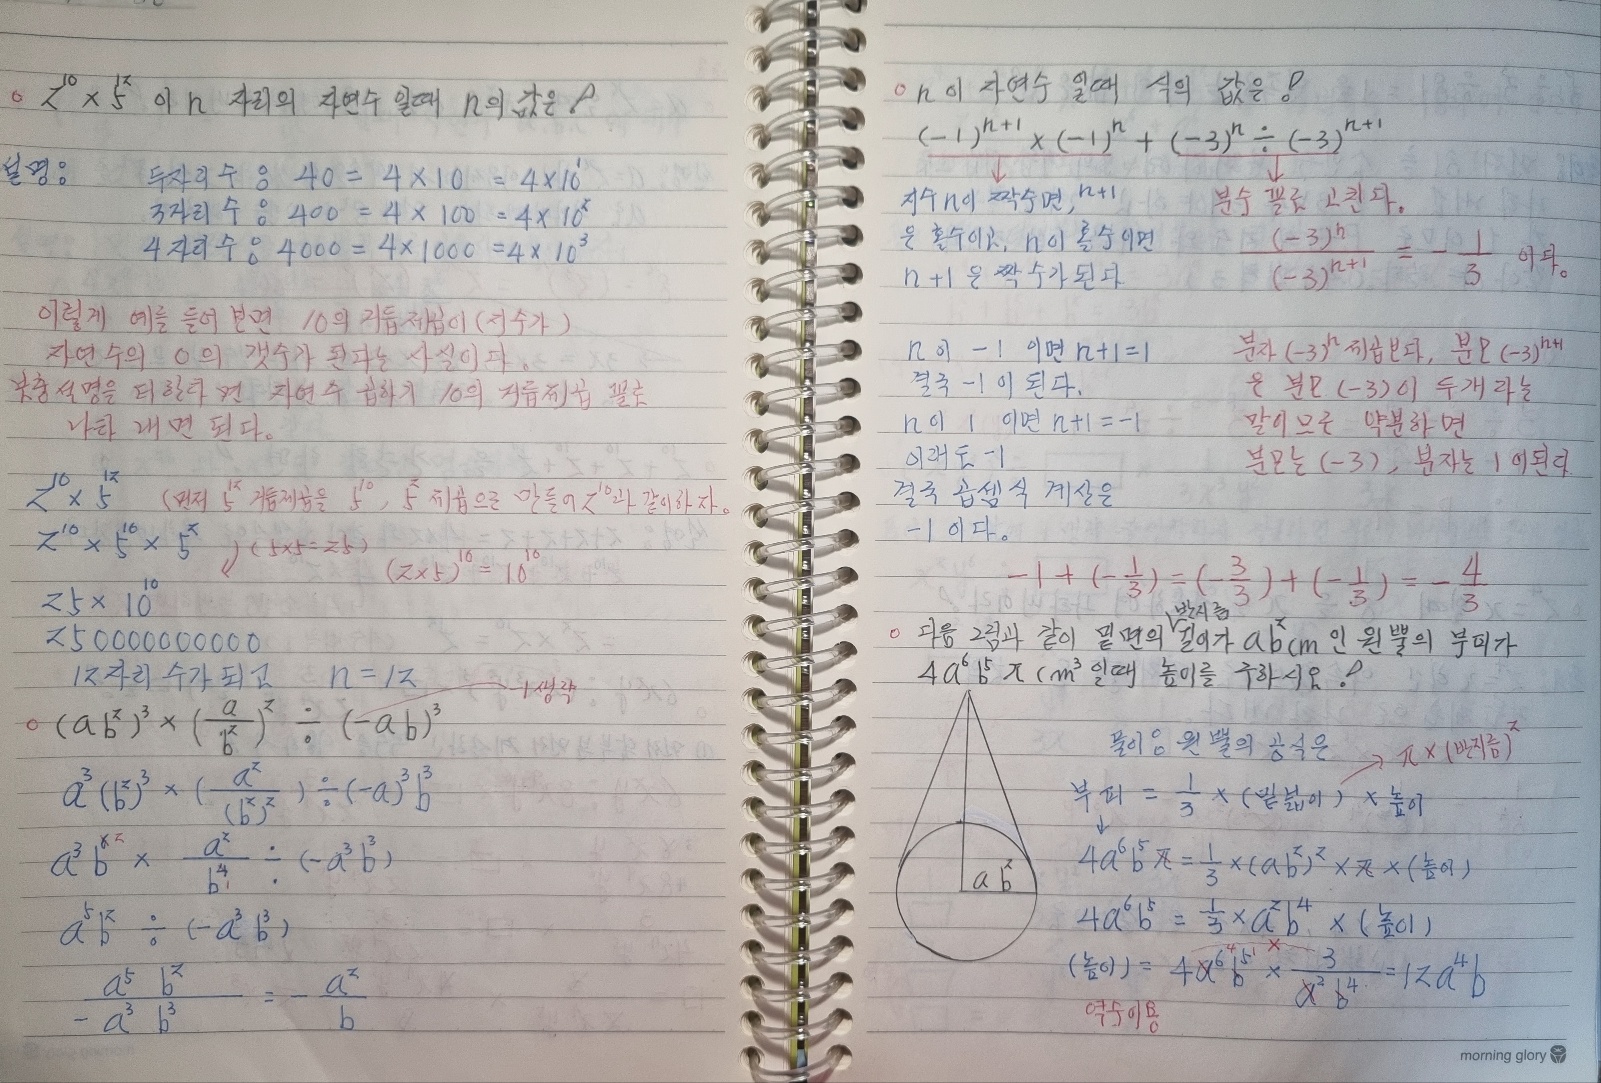 2¹⁰ × 5¹² 이 n 자리의 자연수 일때 n의 값은?
설명:
두자리수 : 40 = 4 × 10 = 4 × 10¹
3자리수 : 400 = 4 × 100 = 4 × 10²
4자리수 : 4000 = 4 × 1000 = 4 × 10³
이렇게 예를 들어 보면 10의 거듭제곱이 (지수가)
자연수의 0의 갯수가 된다는 사실이다.
보충설명을 더 한다면 자연수 곱하기 10의 거듭제곱 꼴로
나타 내면 된다.
2¹⁰ × 5¹² (먼저 5¹² 거듭제곱을 5¹⁰, 5² 제곱으로 만들어 2¹⁰과 같이하자.
2¹⁰ × 5¹⁰ × 5² (5×5=25)
(2×5)¹⁰ = 10¹⁰
25 × 10¹⁰
250000000000
12자리 수가 되고 n = 12
-1 생략
(ab²)³ × (a/b²)² ÷ (-ab)³
a³(b²)³ × (a²/(b²)²) ÷ (-a)³b³
a³b⁶ ² × a²/b⁴ ÷ (-a³b³)
a⁵b² ÷ (-a³b³)
a⁵ b²/-a³ b³ = - a²/b
n이 자연수 일때 식의 값은?
(-1)ⁿ⁺¹ × (-1)ⁿ + (-3)ⁿ ÷ (-3)ⁿ⁺¹
지수 n이 짝수면, n+1
은 홀수이고, n이 홀수이면
n+1은 짝수가 된다
분수 꼴로 고친다.
(-3)ⁿ/(-3)ⁿ⁺¹ = - 1/3 이다.
n이 -1 이면 n+1=1
결국 -1이 된다.
n이 1 이면 n+1=-1
이래도 -1
결국 곱셈식 계산은
-1 이다.
분자 (-3)ⁿ 제곱보다, 분모 (-3)ⁿ⁺¹
은 분모 (-3)이 두개 라는
말이므로 약분하면
분모는 (-3), 분자는 1이된다
-1 + (-1/3) = (-3/3) + (-1/3) = -4/3
다음 그림과 같이 밑면의 반지름 길이가 ab²cm 인 원뿔의 부피가
4a⁶b⁵π cm³ 일때 높이를 구하시요?
ab²
풀이 : 원뿔의 공식은
π × (반지름)²
부피 = 1/3 × (밑넓이) × 높이
4a⁶b⁵π = 1/3 × (ab²)² × π × (높이)
4a⁶b⁵ = 1/3 × a²b⁴ × (높이)
(높이) = 4a⁶b⁵ × 3/a²b⁴ = 12a⁴b
역수이용
morning glory